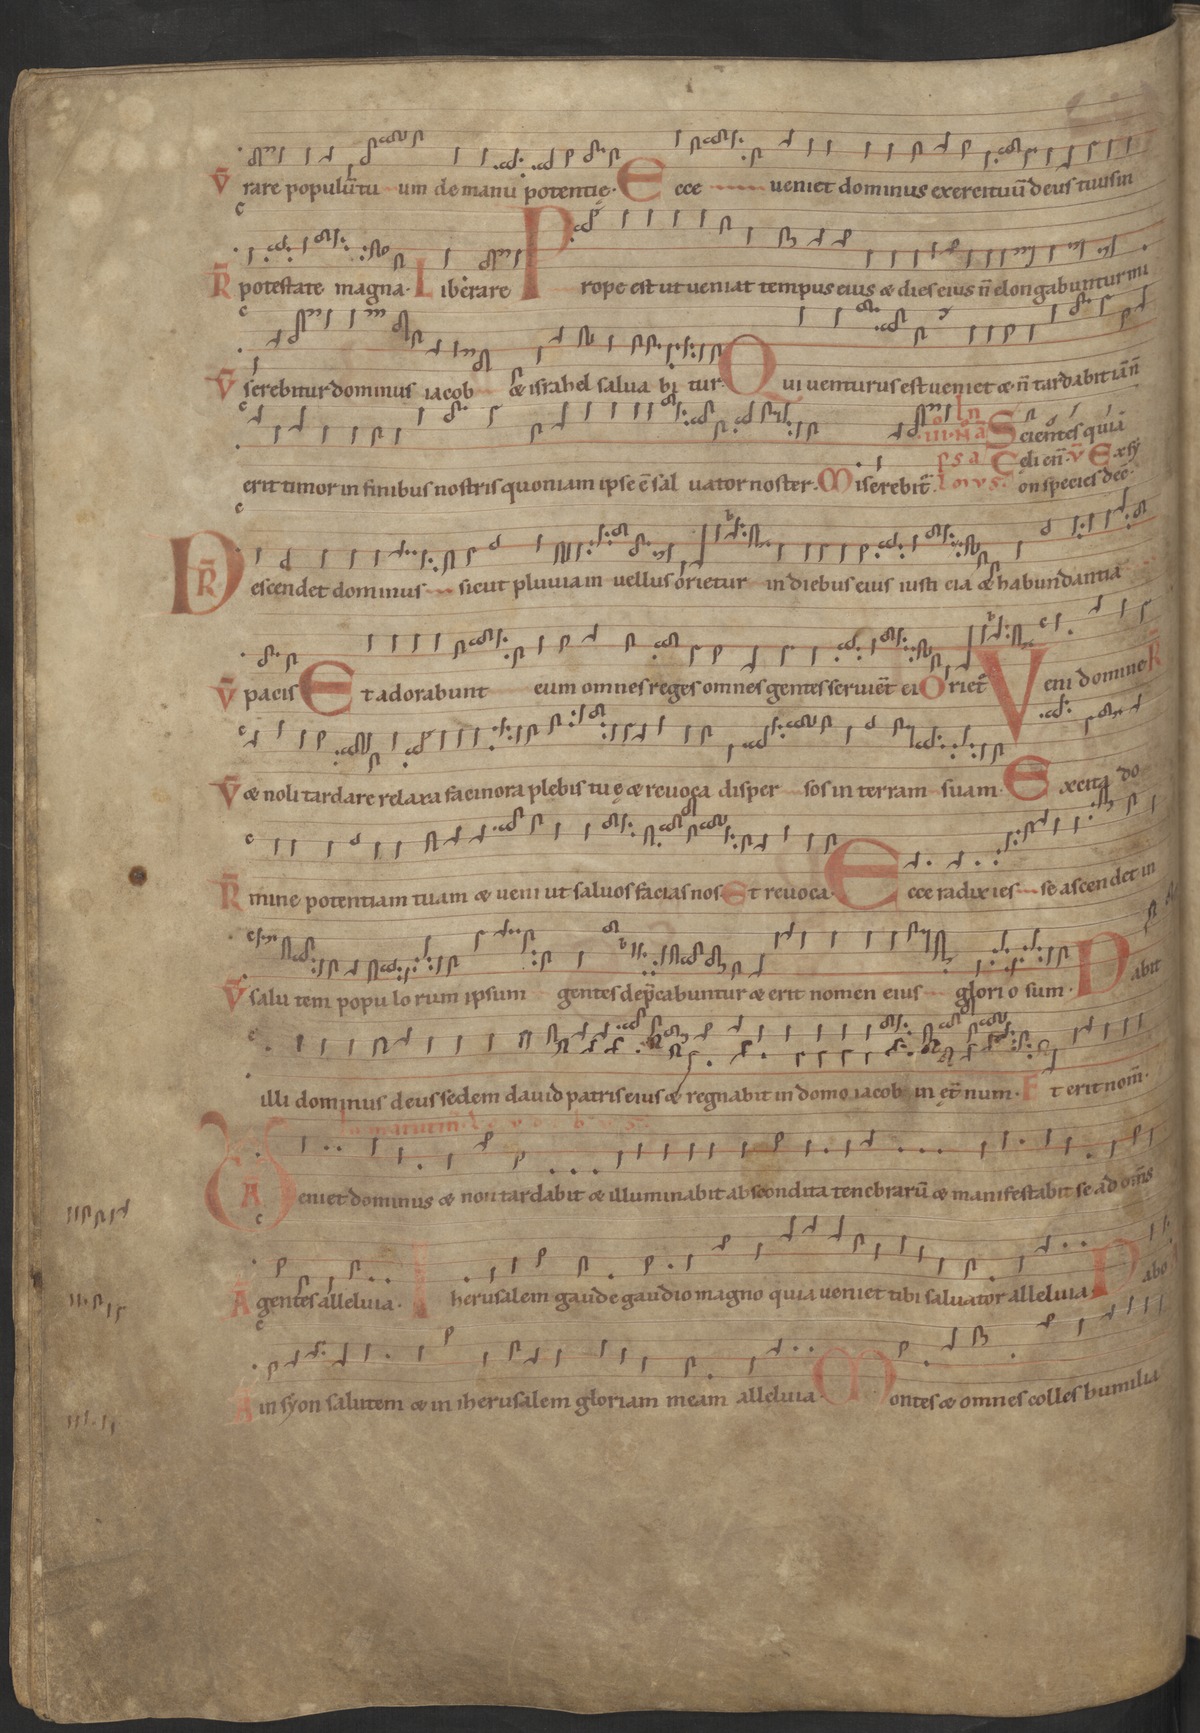 V̄ rare populū tu um de manu potentię. Ecce ueniet dominus exercituū deus tuus in
R̄ potestate magna. Liberare Prope est ut ueniat tempus eius & dies eius n̄ elongabuntur mi
V̄ serebitur dominus iacob & israhel salua bi tur. Qui uenturus est ueniet & n̄ tardabit iā n̄
erit timor in finibus nostris quoniam ipse ē sal uator noster. Miserebit̄. Scientes quia
In III. N̄ ā
psa Celi en̄. v̄ Ex sy
on species decē.
R̄ Descendet dominus sicut pluuia in uellus orietur in diebus eius iusti cia & habundantia
V̄ pacis Et adorabunt eum omnes reges omnes gentes seruiēt ei Oriet̄ Veni domine R̄
V̄ & noli tardare relaxa facinora plebis tuę & reuoca disper sos in terram suam. Excita do
R̄ mine potentiam tuam & ueni ut saluos facias nos. Et reuoca. Ecce radix ies se ascendet in
V̄ salu tem popu lo rum ipsum gentes dep̄cabuntur & erit nomen eius glori o sum. Dabit
illi dominus deus sedem dauid patris eius & regnabit in domo iacob in et̄ num. Et erit nom̄.
A Veniet dominus & non tardabit & illuminabit abscondita tenebrarū & manifestabit se ad om̄s
Ā gentes alleluia. Iherusalem gaude gaudio magno quia ueniet tibi saluator alleluia. Dabo
Ā in syon salutem & in iherusalem gloriam meam alleluia. Montes & omnes colles humilia